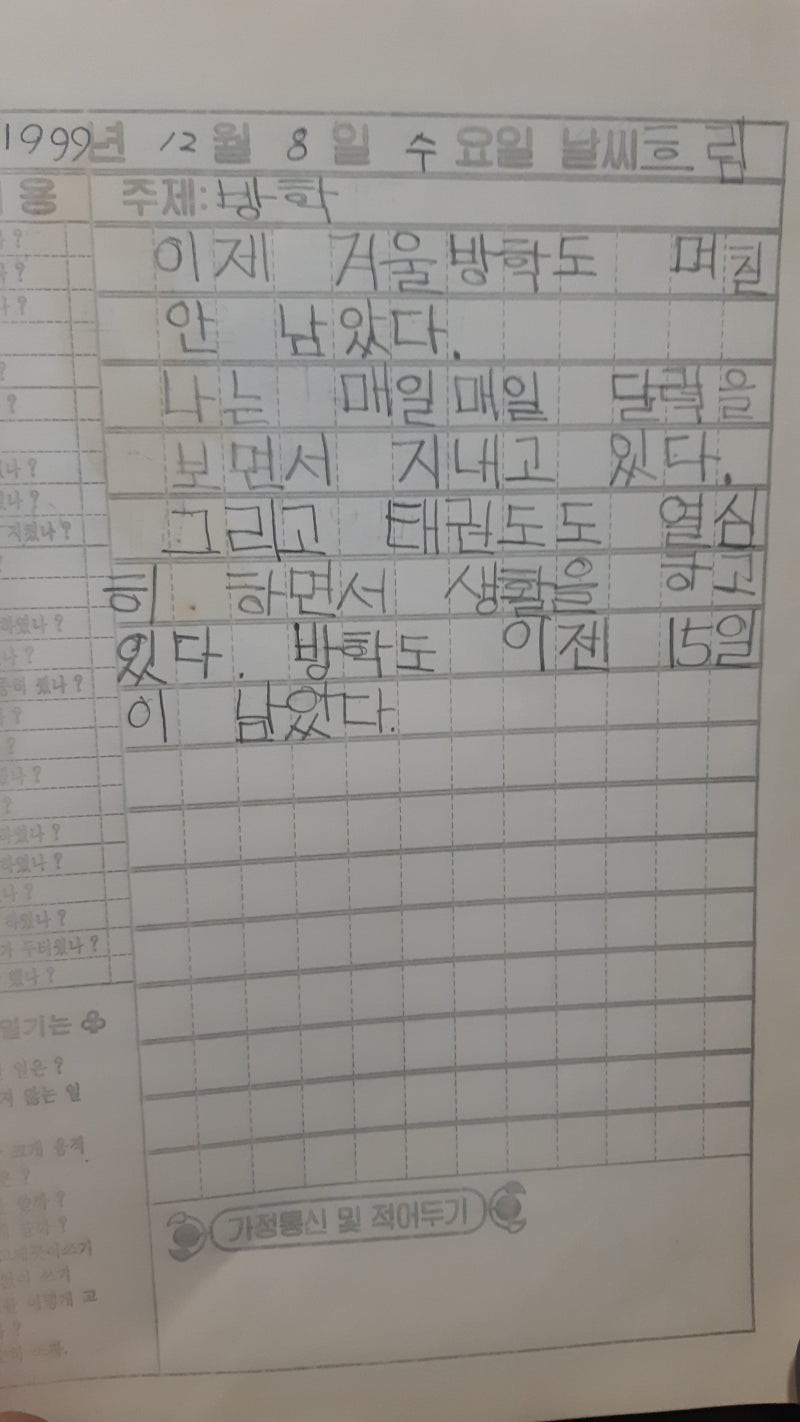 1999년 12월 8일 수요일 날씨흐림
주제: 방학
이제 겨울방학도 며칠
안 남았다.
나는 매일매일 달력을
보면서 지내고 있다.
그리고 태권도도 열심
히 하면서 생활을 하고
있다. 방학도 이젠 15일
이 남았다.
용
지켰나?
하였나?
하였나?
하였나?
하였나?
가 두터웠나?
했나?
일기는
일은?
지 않는 일
크게 움직
쓰기
어떻게 고
가정통신 및 적어두기